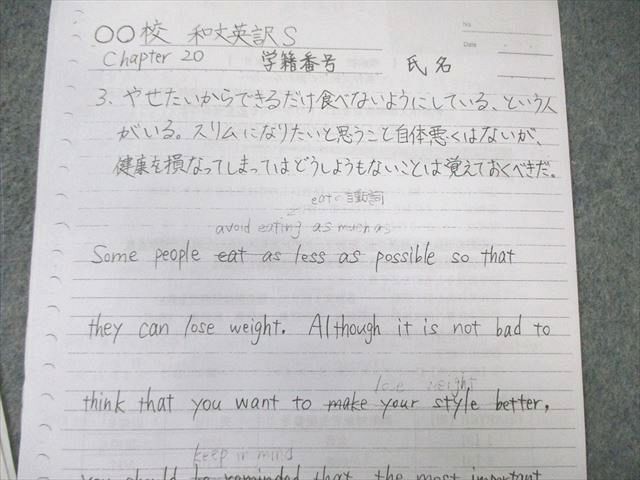 No.
Date
〇〇校 和文英訳S
Chapter 20 学籍番号 氏名
3. やせたいからできるだけ食べないようにしている、という人
がいる。スリムになりたいと思うこと自体悪くはないが、
健康を損なってしまってはどうしようもないことは覚えておくべきだ。
avoid eating as much as
Some people eat as less as possible so that
they can lose weight. Although it is not bad to
lose weight
think that you want to make your style better,
keep in mind
you should be reminded that the most important